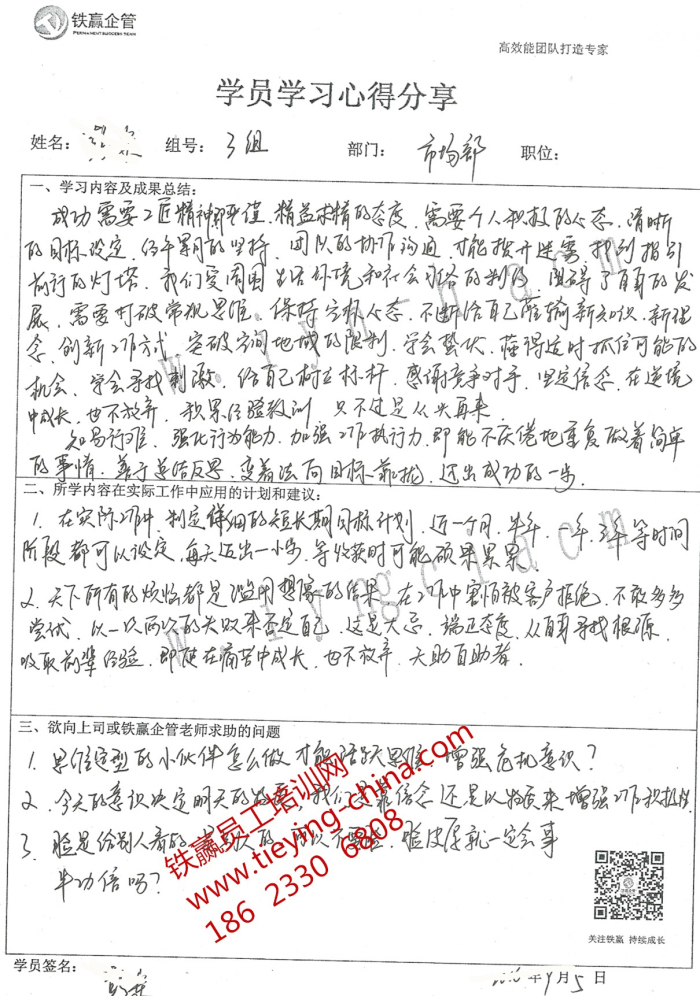 铁赢企管
PERMANENT SUCCESS TEAM
高效能团队打造专家
学员学习心得分享
姓名: 组号: 3组 部门: 市场部 职位:
一、学习内容及成果总结:
成功需要工匠精神 精益求精的态度、需要个人积极的心态、清晰
的目标设定、经年累月的坚持、团队的协作沟通、才能拨开迷雾、找到指引
前行的灯塔、我们受周围生活环境和社会网络的制约、阻碍了自身的发
展、需要打破常规思维、保持空杯心态、不断给自己灌输新知识、新理
念、创新工作方式、突破空间地域的限制、学会蛰伏、懂得适时抓住可能的
机会、学会寻找刺激、给自己树立标杆、感谢竞争对手、坚定信念、在逆境
中成长、也不放弃、积累经验教训、只不过是从头再来
知易行难、强化行为能力、加强工作执行力、即能不厌倦地重复做着简单
的事情、善于总结反思、变着法向目标靠拢、迈出成功的一步、
二、所学内容在实际工作中应用的计划和建议:
1、在实际工作中、制定详细的短长期目标计划、近一个月、半年、一年、三年等时间
阶段都可以设定、每天迈出一小步、等收获时可能硕果累累
2、天下所有的烦恼都是滥用想象的结果、在工作中害怕被客户拒绝、不敢多多
尝试、以一次两次的失败来否定自己、这是大忌、端正态度、从自身寻找根源、
吸取前辈经验、即使在痛苦中成长、也不放弃、天助自助者.
三、欲向上司或铁赢企管老师求助的问题
1、思维定型的小伙伴怎么做才能 思维、增强危机意识?
2、今天的意识决定明天的 我们 靠信念还是以物质来增强工作积极性
3、脸是给别人看的、 脸皮厚就一定会事
半功倍吗?
铁赢员工培训网
www.tieying-china.com
186 2330 6808
关注铁赢 持续成长
学员签名:
年9月5日